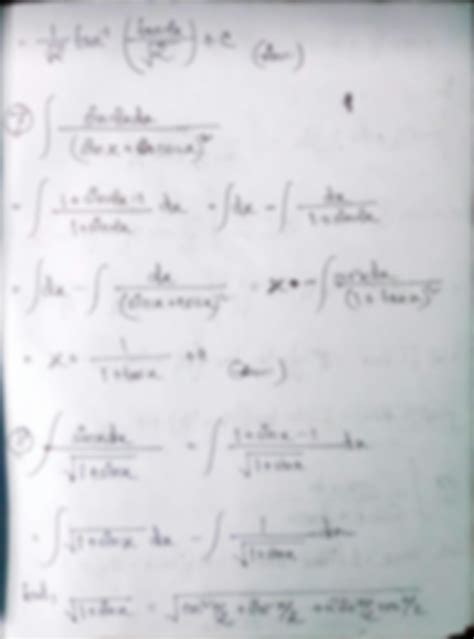 = 1/√2 tan⁻¹ (/√2) + c (Ans)
⑦ ∫ sin2x dx / (sin x + cos x)²
= ∫ (1+sin2x-1)/(1+sin2x) dx = ∫dx - ∫ dx/(1+sin2x)
= ∫dx - ∫ dx/(sin x + cos x)² = x - ∫ sec²x dx/(1+tan x)²
= x + 1/(1+tan x) + c (Ans)
∫ sin x dx/√(1+sin x) = ∫ (1+sin x-1)/√(1+sin x) dx
= ∫ √(1+sin x) dx - ∫ 1/√(1+sin x) dx
but, √(1+sin x) = √(cos² x/2 + sin² x/2 + 2 sin x/2 cos x/2)